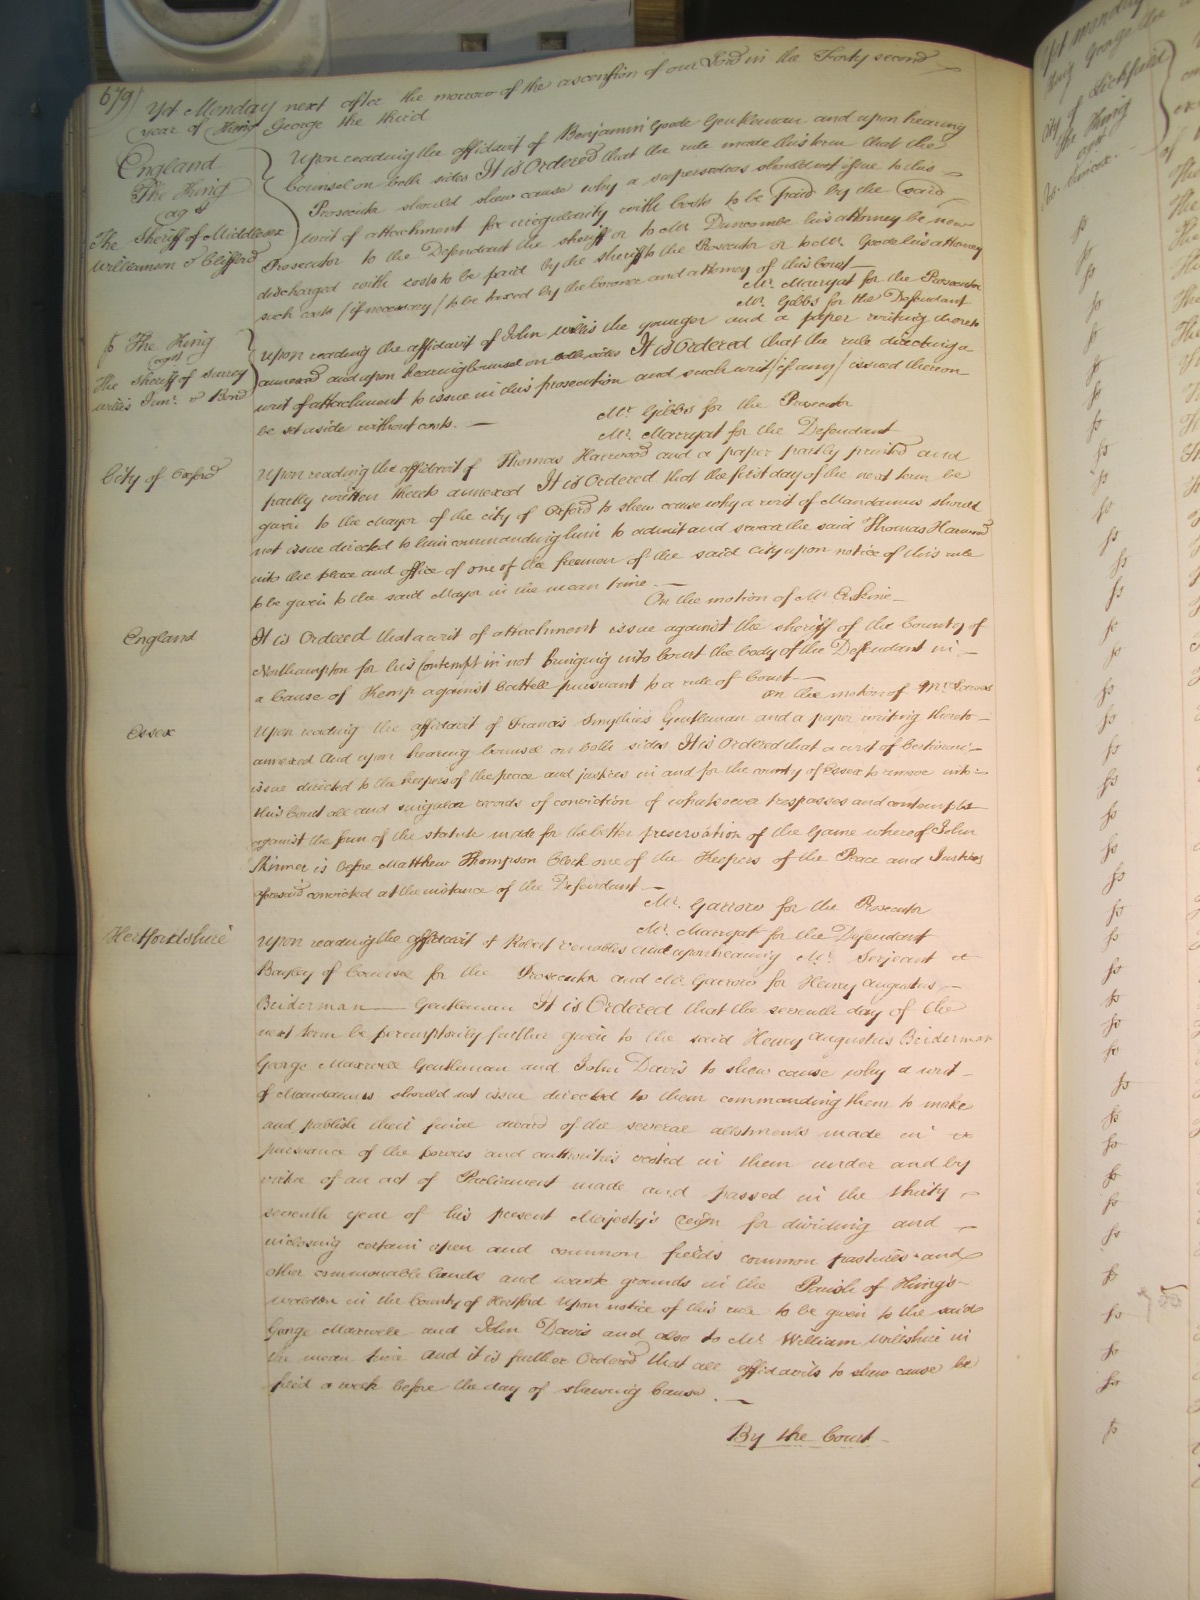 679
Yet Monday next after the morrow of the ascension of our Lord in the Forty second
year of King George the third
England
The King
agt
The Sheriff of Middlesex
Williamson v Clifford
Upon reading the affidavit of Benjamin Goode Gentleman and upon hearing
Counsel on both sides It is Ordered that the rule made this term that the
Prosecutor should shew cause why a supersedeas should not issue to this
writ of attachment for irregularity with costs to be paid by the said
Prosecutor to the Defendant the sheriff or to Mr Duncombe his attorney be now
discharged with costs to be paid by the sheriff to the Prosecutor or to Mr Goode his attorney
such costs / if necessary / to be taxed by the coroner and attorney of this Court
Mr. Marryat for the Prosecutor
Mr. Gibbs for the Defendant
The King
agst
The Sheriff of Surrey
Willis Junr. v Bond
Upon reading the affidavit of John Willis the younger and a paper writing thereto
annexed and upon hearing Counsel on both sides It is Ordered that the rule directing a
writ of attachment to issue in this prosecution and such writ / if any / issued thereon
be set aside without costs.
Mr. Gibbs for the Prosecutor
Mr. Marryat for the Defendant
City of Oxford
Upon reading the affidavit of Thomas Harwood and a paper partly printed and
partly written thereto annexed It is Ordered that the first day of the next term be
given to the Mayor of the city of Oxford to shew cause why a writ of Mandamus should
not issue directed to him commanding him to admit and swear the said Thomas Harwood
into the place and office of one of the freemen of the said City upon notice of this rule
to be given to the said Mayor in the mean time
On the motion of Mr Erskine
England
It is Ordered that a writ of attachment issue against the sheriff of the County of
Northampton for his Contempt in not bringing into Court the body of the Defendant in
a Cause of Kemp against Cattell pursuant to a rule of Court
On the motion of Mr
Essex
Upon reading the affidavit of Francis Smythies Gentleman and a paper writing thereto
annexed And upon hearing Counsel on both sides It is Ordered that a writ of Certiorari
issue directed to the keepers of the peace and justices in and for the county of Essex to remove into
this Court all and singular records of conviction of whatsoever trespasses and contempts
against the form of the statute made for the better preservation of the Game whereof John
Skinner is before Matthew Thompson Clerk one of the Keepers of the Peace and Justices
aforesaid convicted at the instance of the Defendant
Mr. Garrow for the Prosecutor
Mr. Marryat for the Defendant
Hertfordshire
Upon reading the affidavit of Robert Venables and upon hearing Mr. Serjeant
Bayley of Counsel for the Prosecutor and Mr Garrow for Henry Augustus
Beiderman Gentleman It is Ordered that the seventh day of the
next term be peremptorily further given to the said Henry Augustus Beiderman
George Maxwell Gentleman and John Davis to shew cause why a writ
of Mandamus should not issue directed to them commanding them to make
and publish their final award of the several allotments made in
pursuance of the powers and authorities vested in them under and by
virtue of an act of Parliament made and passed in the thirty
seventh year of his present Majesty's reign for dividing and
inclosing certain open and common fields common pastures and
other commonable lands and waste grounds in the Parish of King's
Walden in the County of Hertford Upon notice of this rule to be given to the said
George Maxwell and John Davis and also to Mr. William Willshire in
the mean time And it is further Ordered that all affidavits to shew cause be
filed a week before the day of shewing Cause.
By the Court